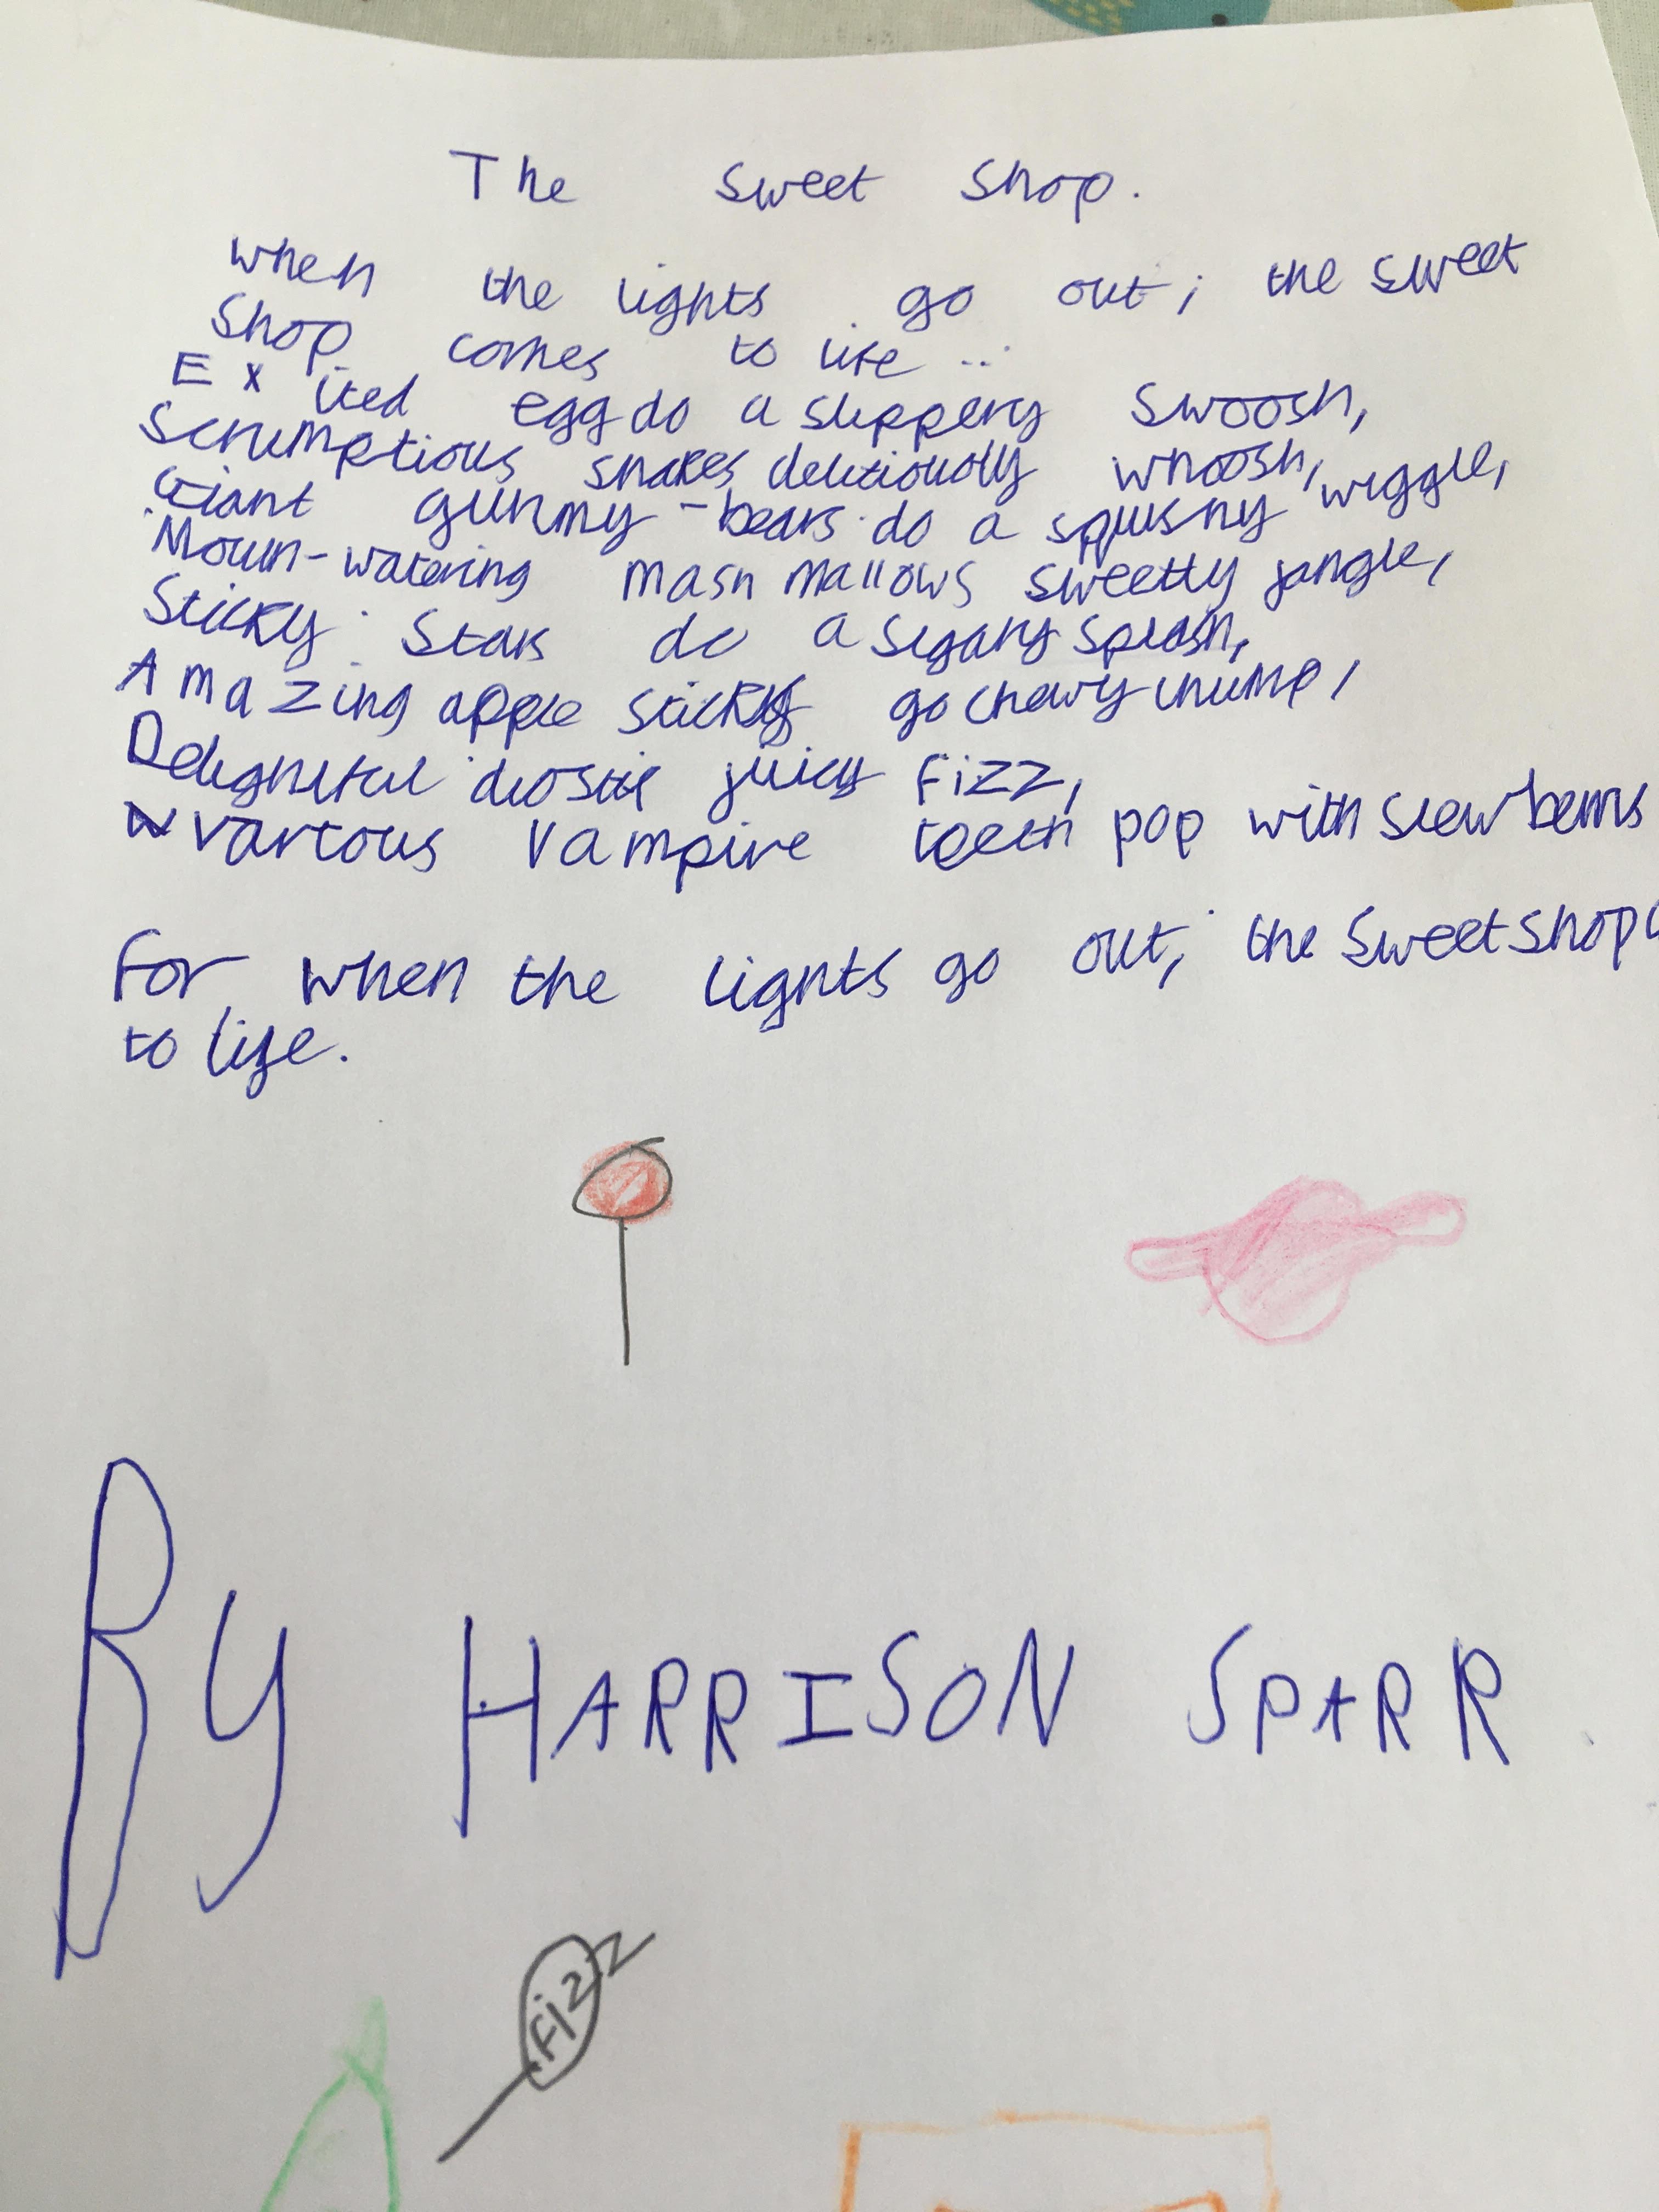 The sweet shop.
when the lights go out; the sweet
shop comes to life ...
Exited egg do a slippery swoosh,
Scrumptious snakes deliciously whoosh,
Giant gummy-bears do a squishy wiggle,
Mouth-watering mash mallows sweetly jangle,
Sticky stars do a sugary splash,
Amazing apple sticks go chewy chump,
Delightful juicy fizz,
various vampire teeth pop with
For when the lights go out; the sweetshop
to life.
By HARRISON SPARR
Fizz